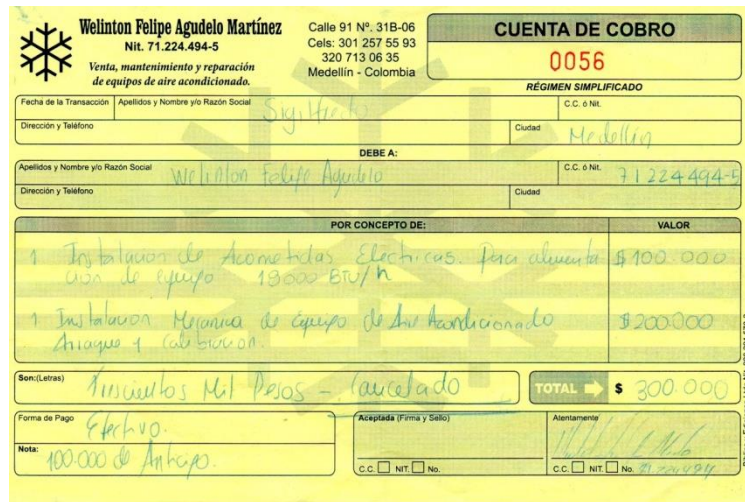 Welinton Felipe Agudelo Martínez
Nit. 71.224.494-5
Venta, mantenimiento y reparación
de equipos de aire acondicionado.
Calle 91 Nº. 31B-06
Cels: 301 257 55 93
320 713 06 35
Medellín - Colombia
CUENTA DE COBRO
0056
RÉGIMEN SIMPLIFICADO
Fecha de la Transacción
Apellidos y Nombre y/o Razón Social
Sigilfredo
C.C. ó Nit.
Dirección y Teléfono
Ciudad
Medellín
DEBE A:
Apellidos y Nombre y/o Razón Social
Welinton Felipe Agudelo
C.C. ó Nit.
71224494-5
Dirección y Teléfono
Ciudad
POR CONCEPTO DE:
VALOR
1 Instalacion de Acometidas Electricas. Para alimenta $100.000
cion de equipo 18000 BTU/h
1 Instalacion Mecanica de equipo de Aire Acondicionado $200.000
Arraque y Calibracion.
Son:(Letras)
Trescientos Mil Pesos - Cancelado
TOTAL $ 300.000
Forma de Pago
Efectivo.
Nota:
100.000 de Anticipo.
Aceptada (Firma y Sello)
C.C. NIT. No.
Atentamente
C.C. NIT. No. 71.224494